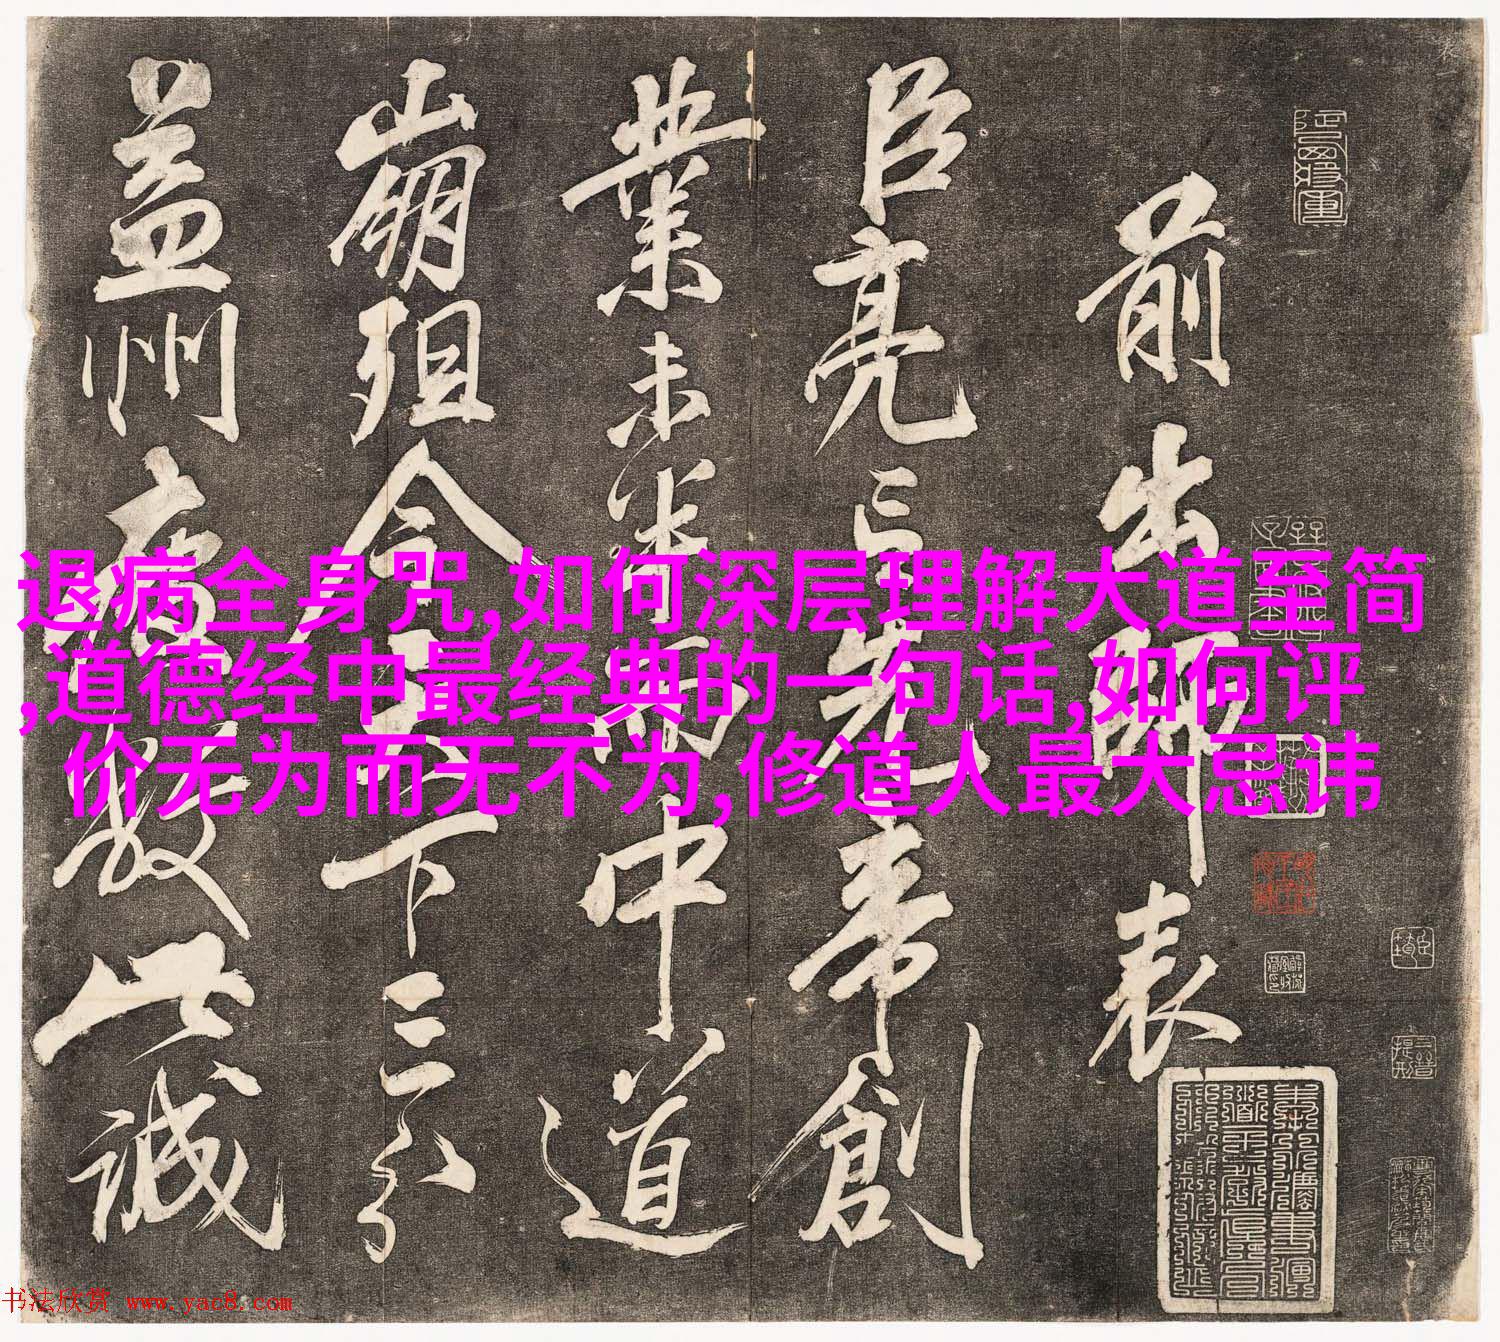 前出師表
臣亮言先帝創
業未半而中道
崩殂今天下三分
益州疲敝此誠
退病全身咒,如何深层理解大道至简
,道德经中最经典的一句话,如何评
价无为而无不为,修道人最大忌讳
书法欣赏 www.yac8.com